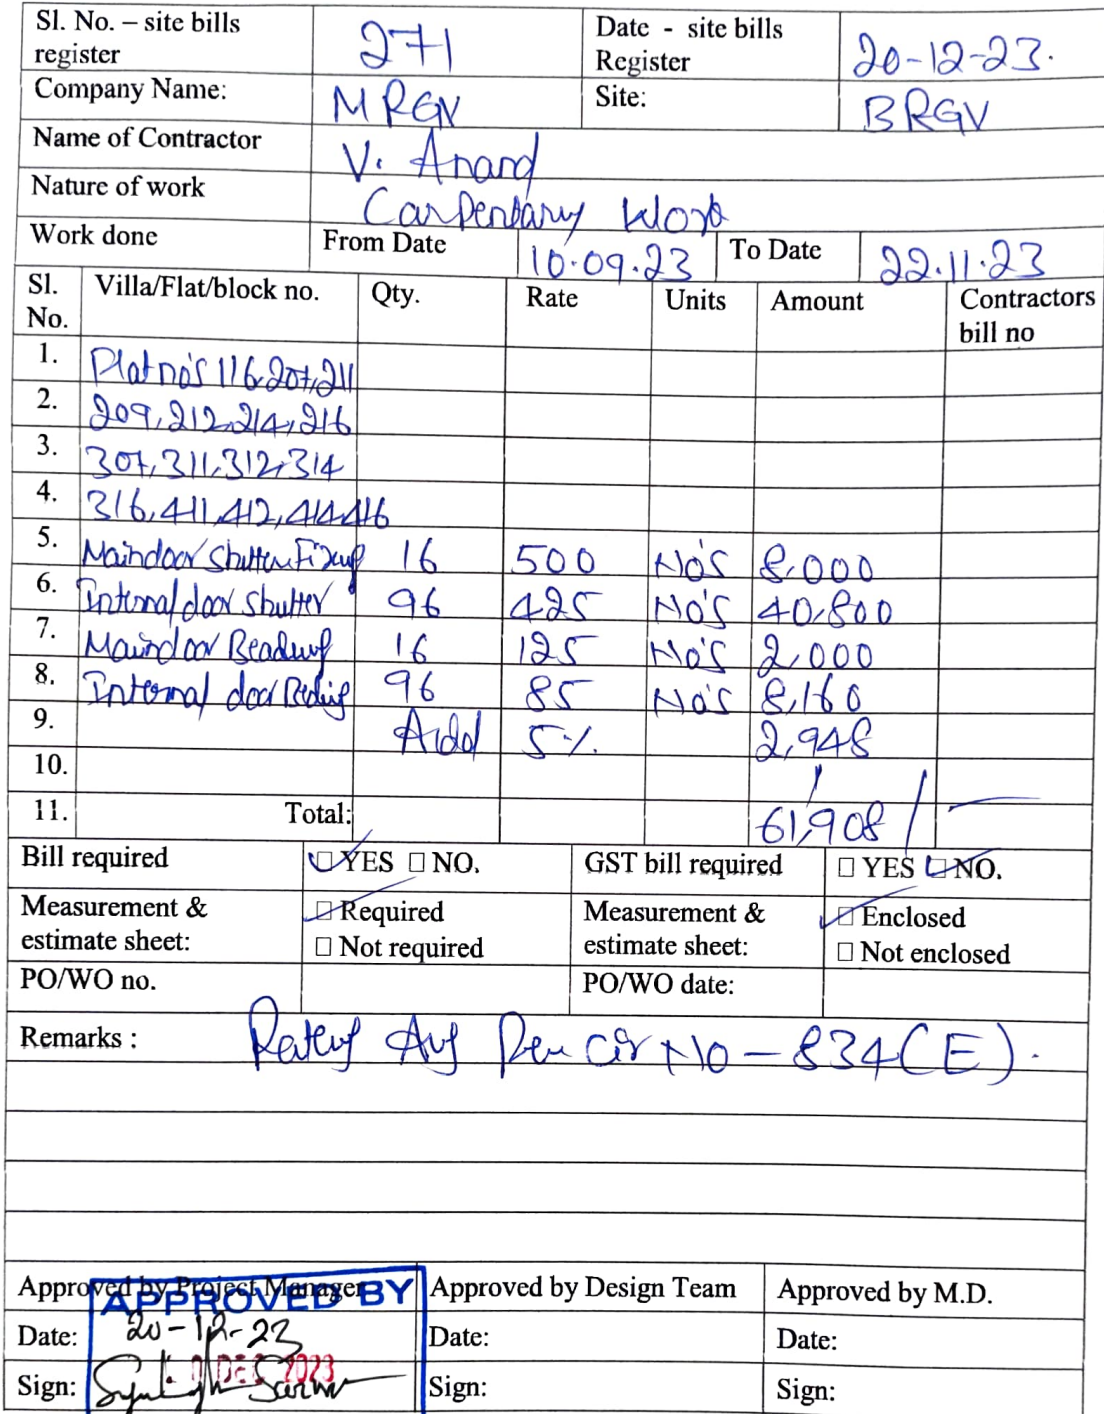 Sl. No. – site bills register 271 Date - site bills Register 20-12-23.
Company Name: MRGV Site: BRGV
Name of Contractor V. Anand
Nature of work Carpentary Work
Work done From Date 10.09.23 To Date 22.11.23
Sl. No. Villa/Flat/block no. Qty. Rate Units Amount Contractors bill no
1. Flat no's 116,207,211
2. 209,212,214,216
3. 307,311,312,314
4. 316,411,412,414,416
5. Maindoor Shutter Fixing 16 500 No's 8,000
6. Internal door Shutter 96 425 No's 40,800
7. Maindoor Beading 16 125 No's 2,000
8. Internal door Beding 96 85 No's 8,160
9. Add 5% 2,948
10.
11. Total: 61,908/
Bill required YES NO. GST bill required YES NO.
Measurement & estimate sheet: Required Not required Measurement & estimate sheet: Enclosed Not enclosed
PO/WO no. PO/WO date:
Remarks : Per Cir No – 834(E).
Approved by Project Manager Approved by Design Team Approved by M.D.
APPROVED BY
Date: 20-12-23 Date: Date:
DEC 2023
Sign: Sign: Sign: